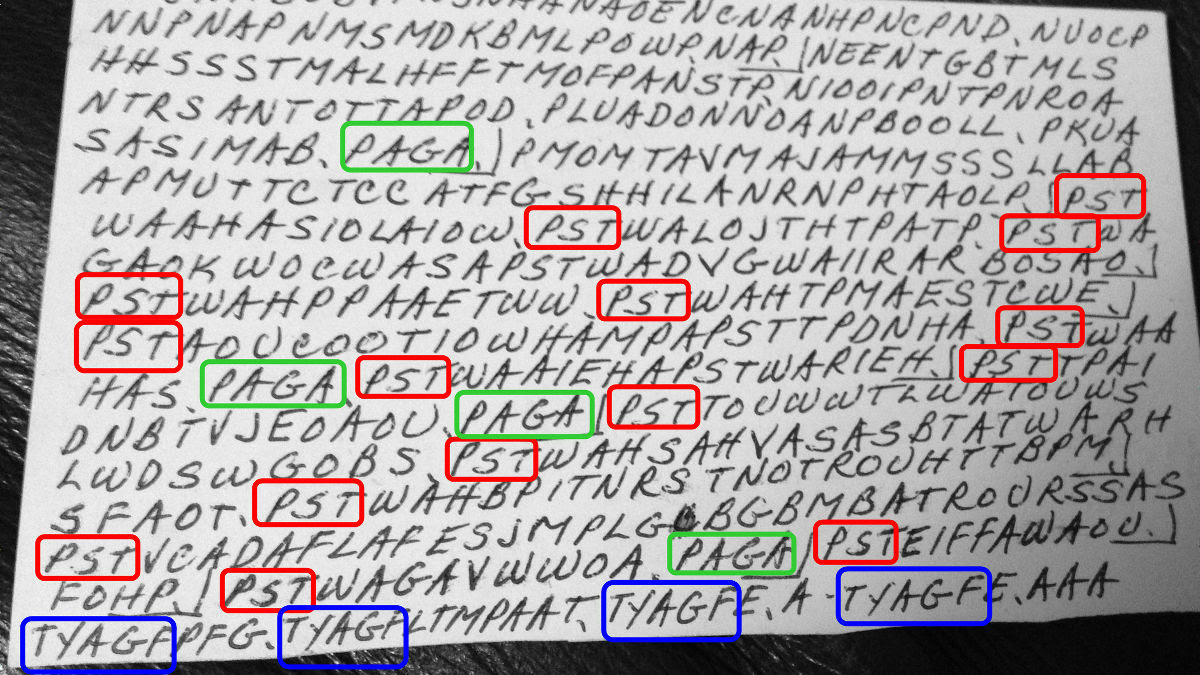 NNPNAPNMSMDKBMLPOWP.NAP.|NEENTGBTMLS
HHSSSTMALHFFTMOFPANSTP.NIOOIPNTPNROA
NTRSANTOTTAPOD.PLUADONNOANPBOOLL.PKUA
SASIMAB.PAGA.)PMOMTAVMAJAMMSSSLLAB
APMUTTCTCC ATFGSHHILANRNPHTAOLP.(PST
WAAHASIOLAIOW.PSTWALOJTHTPATP.PSTWA
GAOKWOCWASAPSTWADVGWAIIRARBOSAO.)
PSTWAHPPAAETWW.PSTWAHTPMAESTCWE.)
PSTAOUCOOTIOWHAMPAPSTTPDNHA.PSTWAA
HAS.PAGA.PSTWAAIEHAPSTWARIEH.)PSTTPAI
DNBTVJEOAOU.PAGA(PSTTOUWWTLWATOUWS
LWDSWGOBS.PSTWAHSAHVASASBTATWARH
SFAOT.PSTWAHBPITNRSTNOTROUHTTBPM.)
PSTVCADAFLAFESJMPLGOBGBMBATROURSSAS
FOHP.(PSTWAGAVWWOA.PAGA)PSTEIFFAWAOU.)
TYAGFPFG.TYAGFLTMPAAT.TYAGFE.A-TYAGFE.AAA